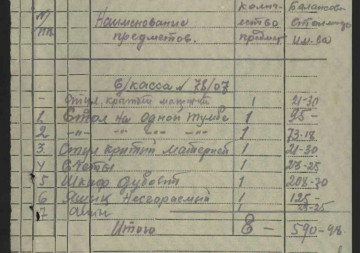 № Наименование Колич- Балансов.
пп предметов. ество Стоимость
предмет. им-ва
Б/касса № 78/07
- Стул, крытый 1 21-30
1. Стол на одной тумбе 1 95 -
2 -"- "" "" "" 1 73-18
3 Стул крытый материей 1 21-30
4 Счеты 1 28-25
5 Шкаф 1 208-70
6 Ящик Несгораемый 1 125 -
7 1
Итого 8 - 590-98